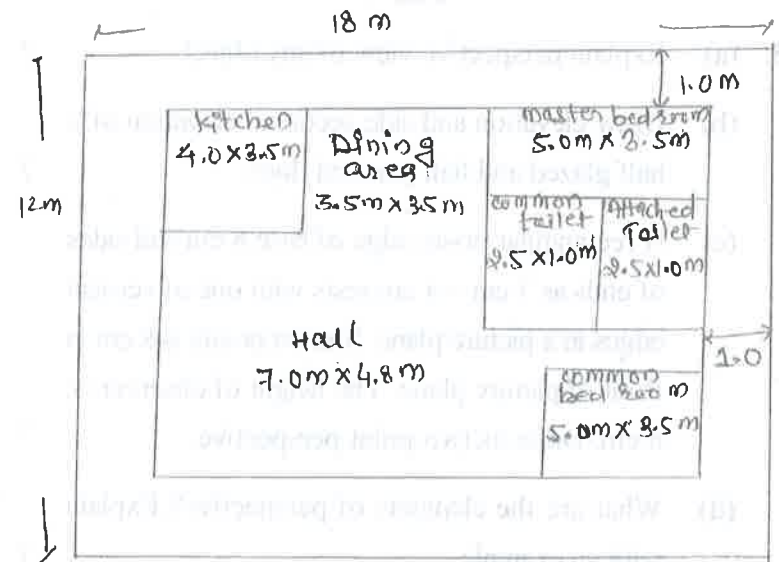 18 m
1.0 m
12 m
Kitchen
4.0 X 3.5 m
Dining
area
3.5m X 3.5 m
master bedroom
5.0m X 3.5m
common
toilet
2.5 X 1.0m
Attached
Toilet
2.5 X 1.0m
1.0
Hall
7.0m X 4.8 m
common
bed room
5.0m X 3.5 m